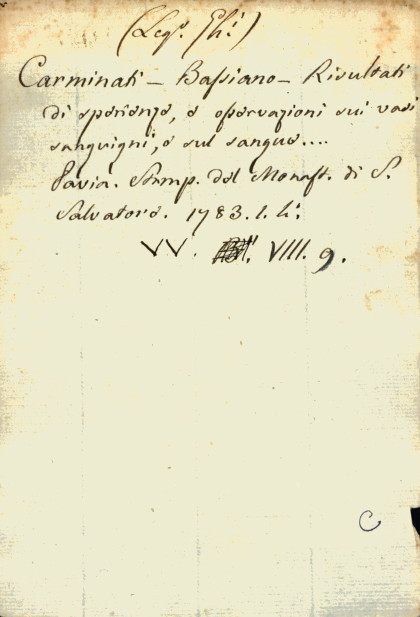 (Leg.º Ghi.)
Carminati – Bassiano – Risultati
di sperienze, e osservazioni sui vasi
sanguigni, e sul sangue....
Pavia. Stamp. del Monast. di S.
Salvatore. 1783. 1. li.
VV. VIII. 9.
C